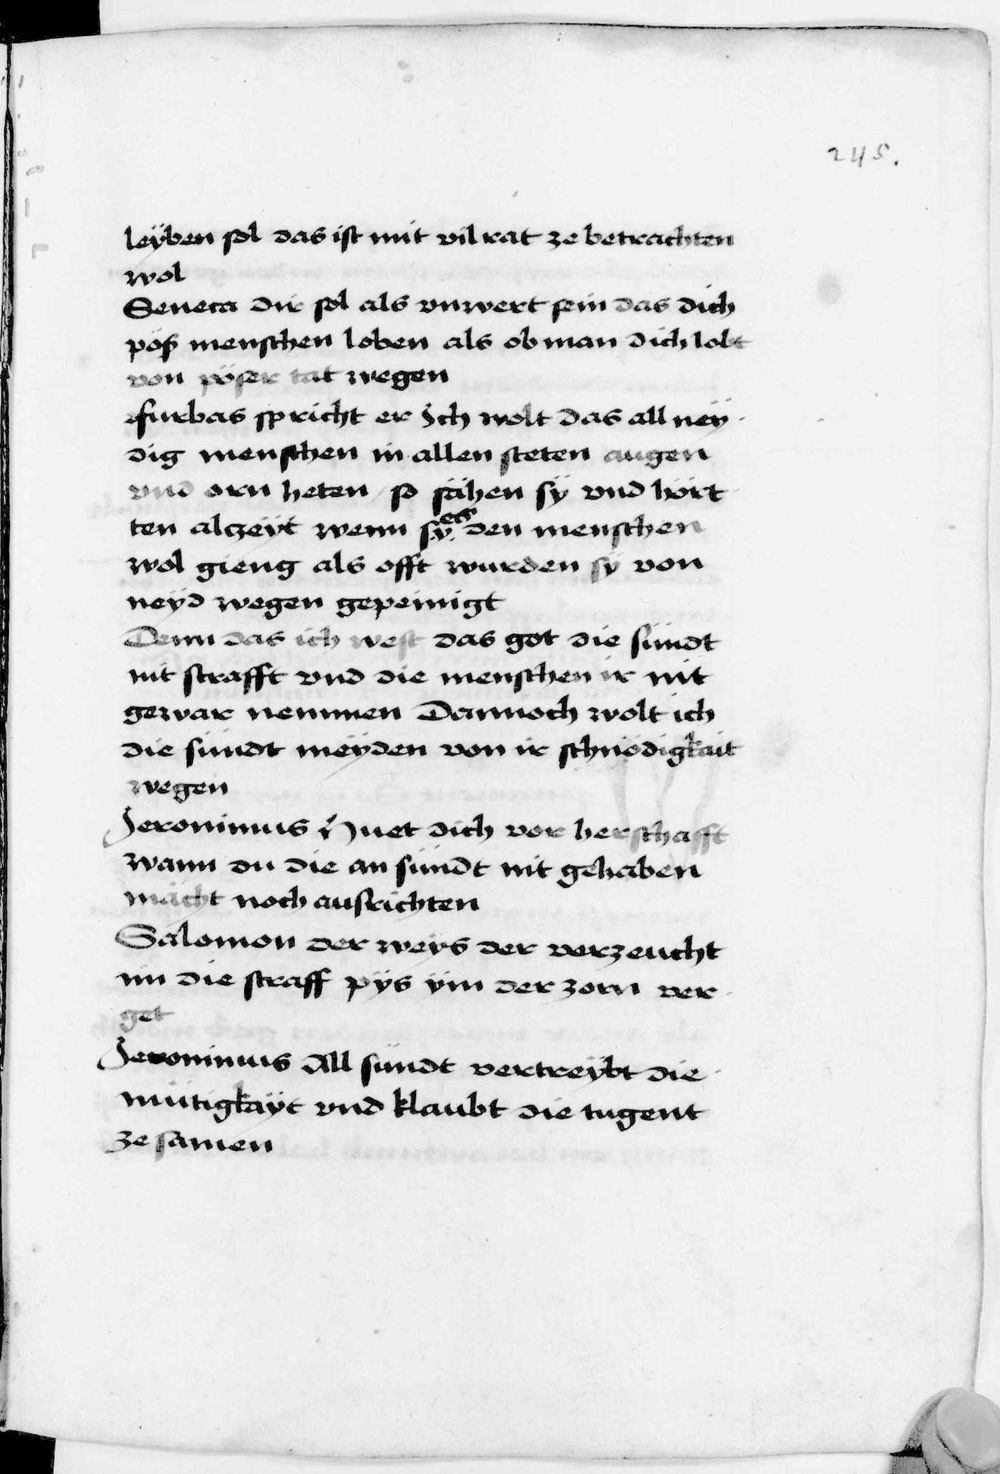 245.
leÿben sol das ist mit vil rat ze betrachten
wol
Seneca dir sol als vnwert sein das dich
pöß menschen loben als ob man dich lobt
von pöser tat wegen
furbas spricht er Ich wolt das all ney
dig menschen in allen steten augen
vnd orn heten / so sähen sÿ vnd hört
ten alczeÿt wenn sy es den menschen
wol gieng als offt wurden sÿ von
neÿd wegen gepeinigt
Denn das ich west das got die sündt
nit strafft vnd die menschen ir nit
gewar nemmen Dannoch wolt ich
die sündt meÿden von ir schnödigkait
wegen
Jeronimus Huet dich vor herschafft
wann du die an sündt nit gehaben
mächt noch ausrichten
Salomon der weÿs der verzeucht
im die straff pÿs ÿm der zorn ver
get
Jeronimus All sündt vertreÿbt die
mütigkaÿt vnd klaubt die tugent
ze samen